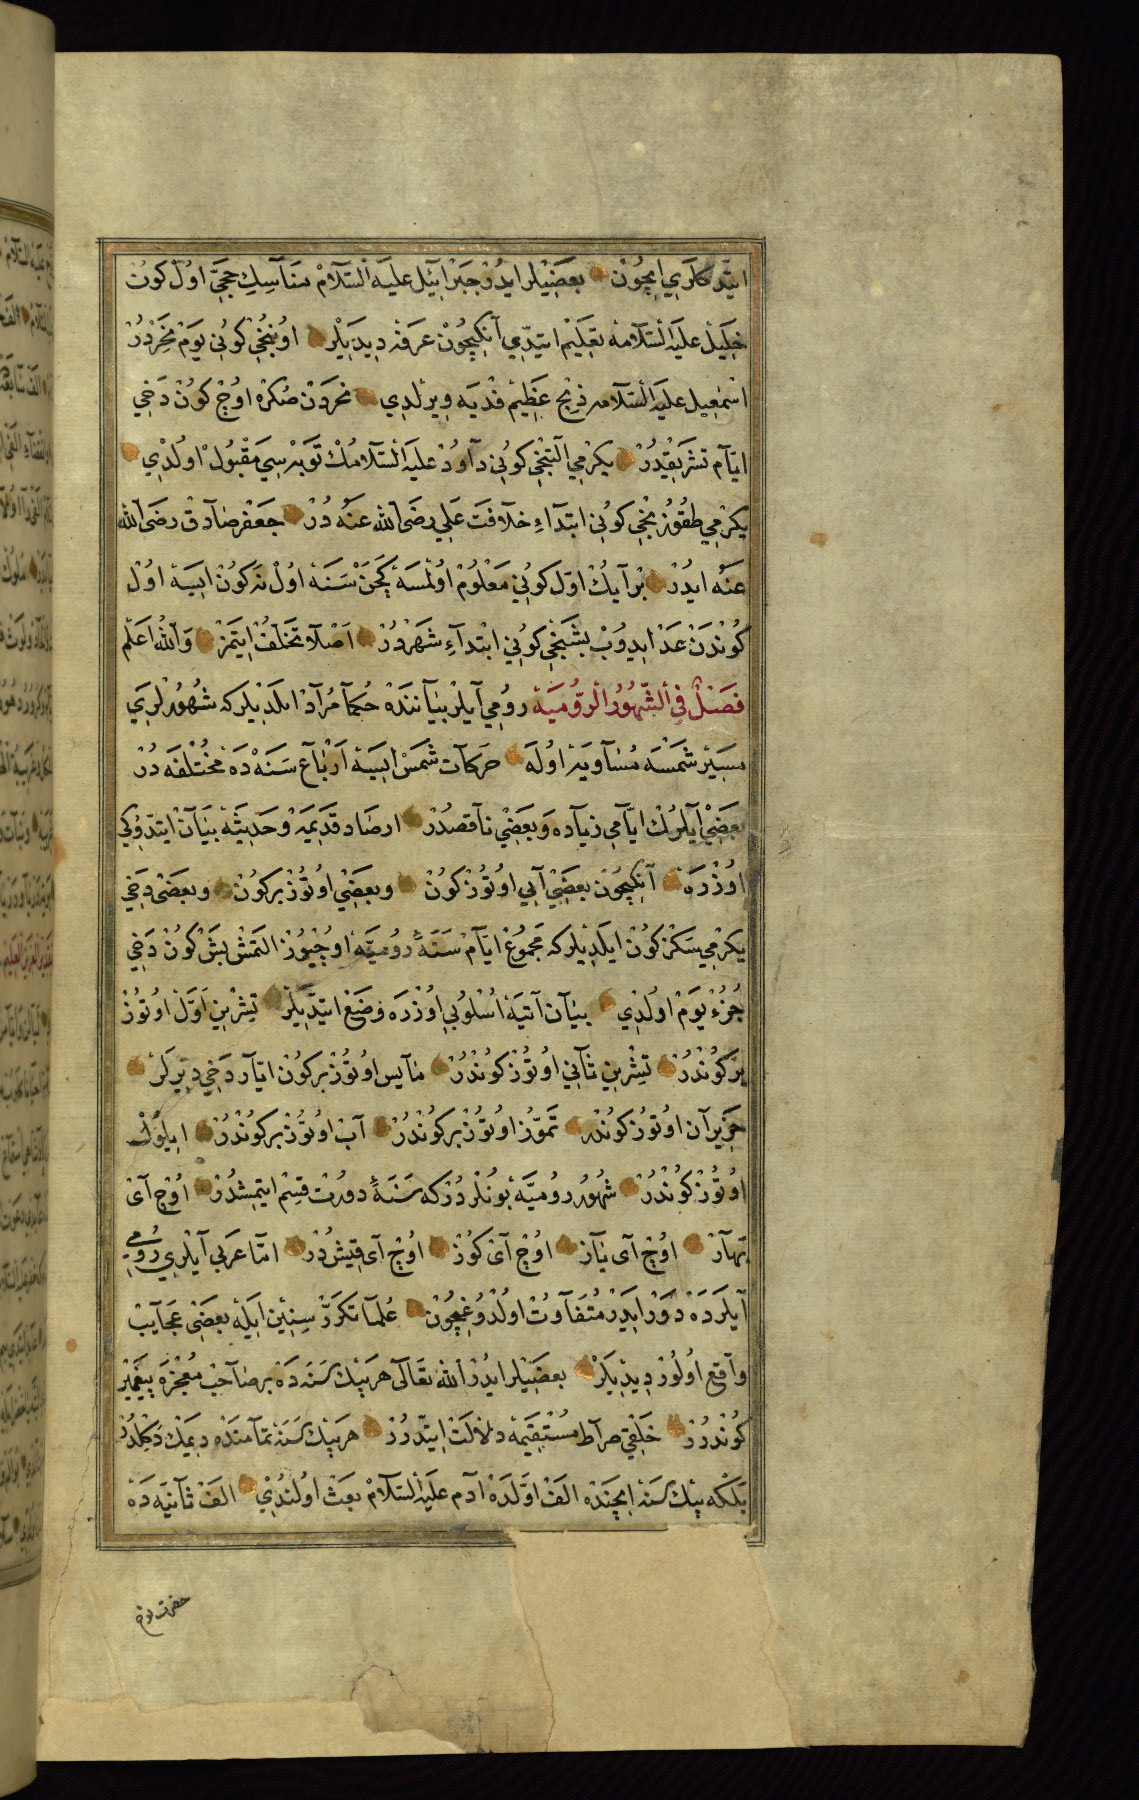 ايتدكلري ايچون بعضيلر ايدر جبرائيل عليه السلام مناسك حجي اول كون
خليل عليه السلامه تعليم ايتدي آنكيچون عرفه ديديلر اوننجي كوني يوم نحردر
اسمعيل عليه السلامه ذبح عظيم فديه ويرلدي نحردن صكره اوچ كون دخي
ايام تشريقدر يكرمي التنجي كوني داود عليه السلامك توبه سي مقبول اولدي
يكرمي طقوزنجي كوني ابتداء خلافت علي رضي الله عنه در جعفر صادق رضي الله
عنه ايدر بر آيك اول كوني معلوم اولمسه كچن سنه اول نه كون ايسه اول
كوندن عد ايدوب بشنجي كوني ابتداء شهردر اصلا تخلف ايتمز والله اعلم
فصل في الشهور الرومية رومي آيلر بياننده حكما مراد ايلديلر كه شهورلري
مسير شمسه مساويه اوله حركات شمس ايسه ارباع سنه ده مختلفه در
بعضي آيلرك ايامي زياده و بعضي ناقصدر ارصاد قديمه و حديثه بيان ايتدوكي
اوزره آنكيچون بعضي آيي اوتوز كون و بعضي اوتوز بر كون و بعضي دخي
يكرمي سكز كون ايلديلر كه مجموع ايام سنه روميه اوچيوز التمش بش كون دخي
جزء يوم اولدي بيان آتيه اسلوبي اوزره وضع ايتديلر تشرين اول اوتوز
بر كوندر تشرين ثاني اوتوز كوندر مايس اوتوز بر كون ايار دخي ديرلر
حزيران اوتوز كوندر تموز اوتوز بر كوندر آب اوتوز بر كوندر ايلول
اوتوز كوندر شهور روميه بونلردر كه سنه دورت قسم ايتمشدر اوچ آي
بهار اوچ آي ياز اوچ آي كوز اوچ آي قيش در اما عربي آيلري رومي
آيلرده دور ايدر متفاوت اولدوغيچون علما تكرر سنين ايله بعضي عجايب
واقع اولور ديديلر بعضيلر ايدر الله تعالى هر بيك سنه ده بر صاحب معجزه پيغمبر
كوندرر خلقي صراط مستقيمه دلالت ايتدرر هر بيك سنه تمامنده ديمك دكلدر
بلكه بيك سنه ايچنده الف اولده ادم عليه السلام بعث اولندي الف ثانيه ده
حضرت نوح